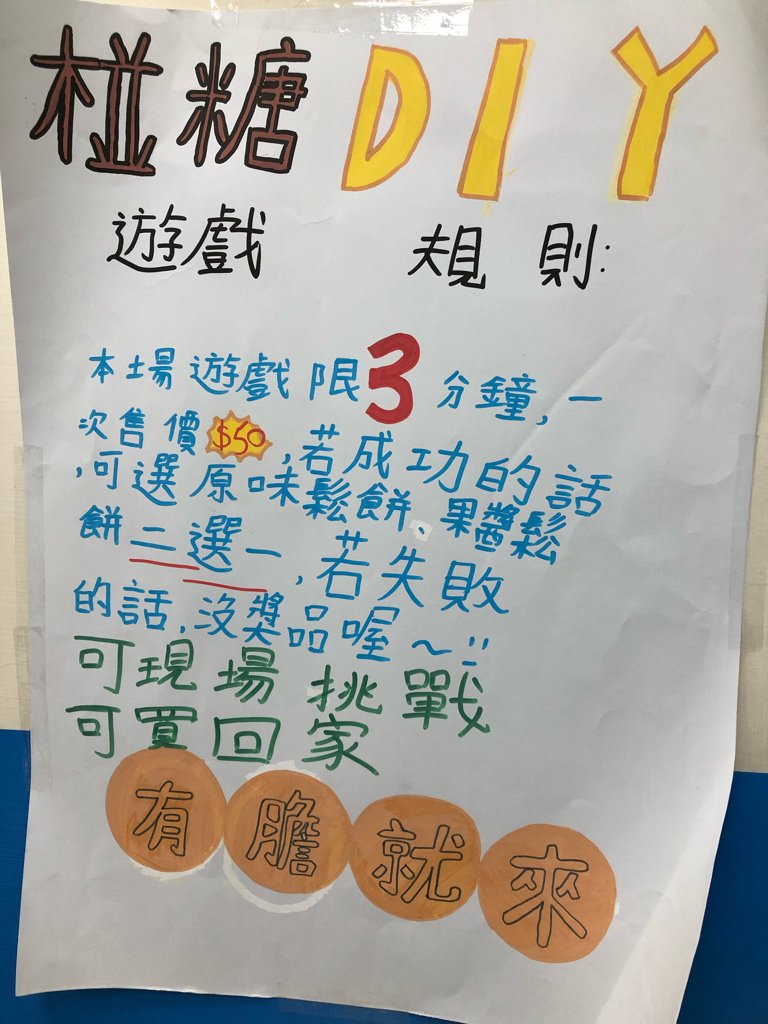 椪糖DIY
遊戲 規則:
本場遊戲限3分鐘,一
次售價$50,若成功的話
,可選原味鬆餅、果醬鬆
餅二選一,若失敗
的話,沒獎品喔~!!
可現場挑戰
可買回家
有膽就來